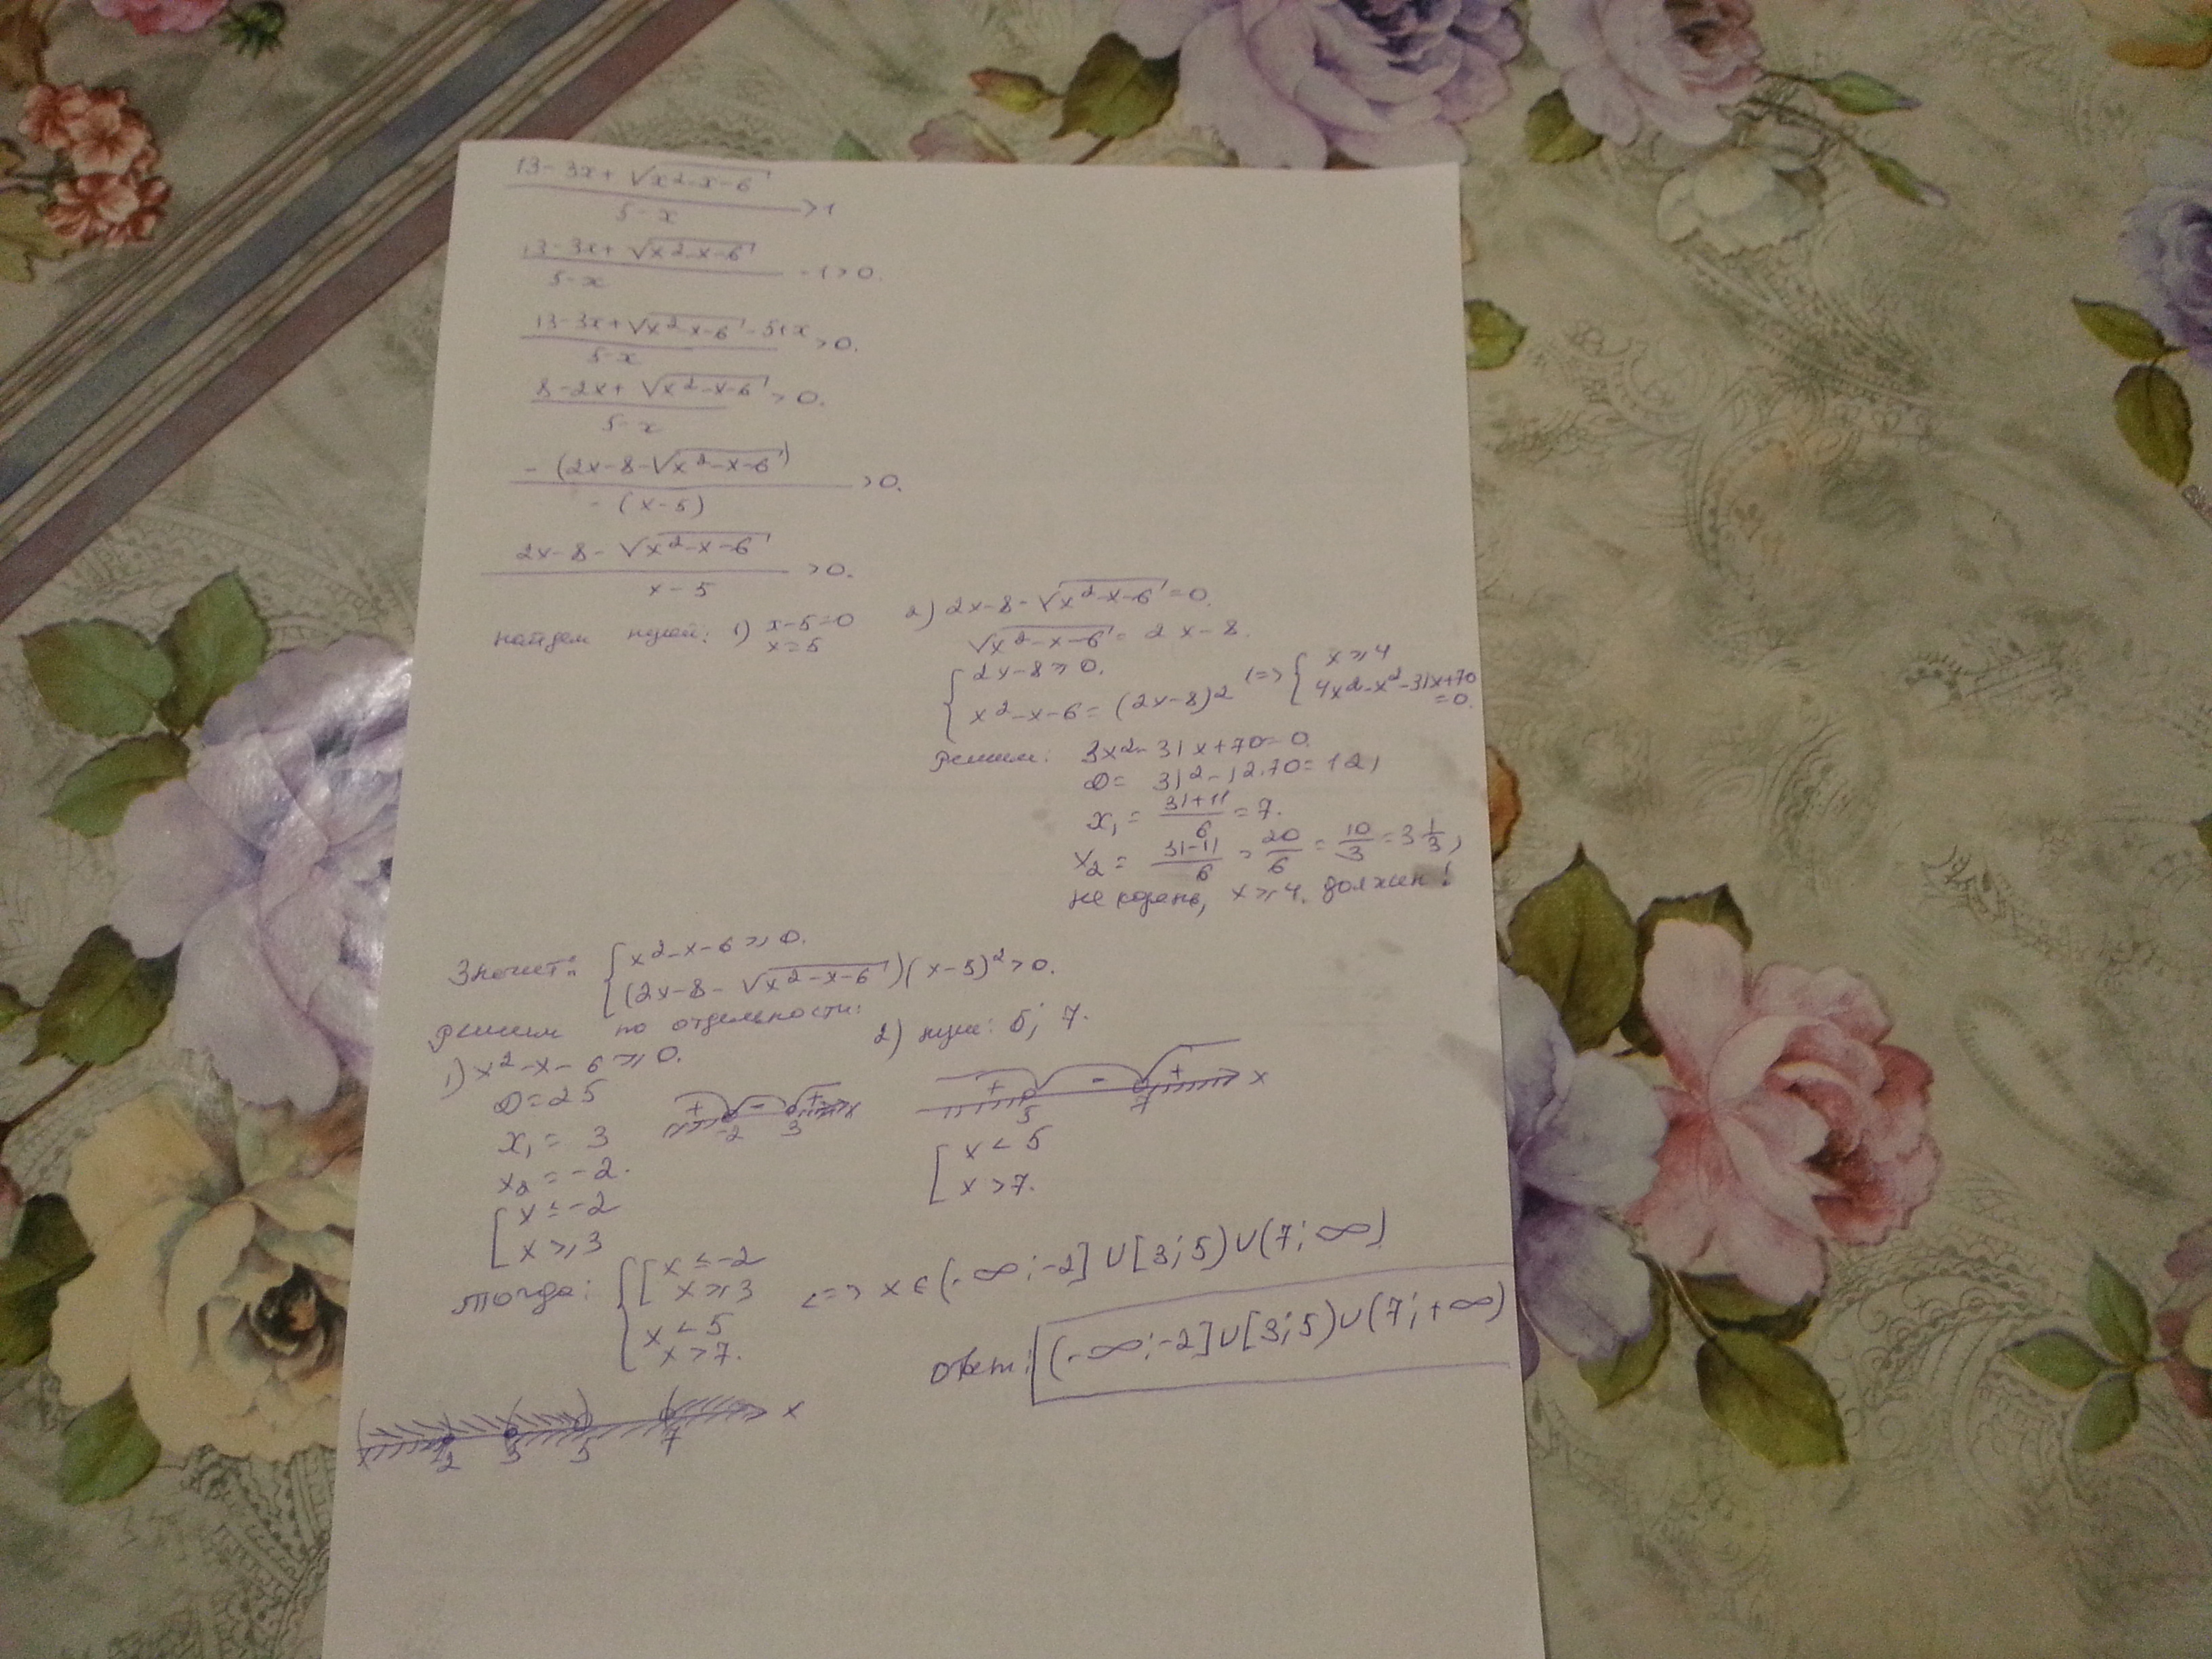 (13-3x+√(x²-x-6))/(5-x) >1
(13-3x+√(x²-x-6))/(5-x) -1>0.
(13-3x+√(x²-x-6)-5+x)/(5-x) >0.
(8-2x+√(x²-x-6))/(5-x) >0.
(-(2x-8-√(x²-x-6)))/(-(x-5)) >0.
(2x-8-√(x²-x-6))/(x-5) >0.
найдем нулей: 1) x-5=0
x=5
2) 2x-8-√(x²-x-6)=0.
√(x²-x-6)=2x-8.
{2x-8≥0. x²-x-6=(2x-8)² <=> {x≥4 4x²-x²-31x+70=0.
Решим: 3x²-31x+70=0.
D=31²-12·70=121
x₁=(31+11)/6=7.
x₂=(31-11)/6=20/6=10/3=3 1/3,
не корень, x≥4. должен!
Значит: {x²-x-6≥0. (2x-8-√(x²-x-6))(x-5)²>0.
Решим по отдельности:
1) x²-x-6≥0.
D=25
x₁=3
x₂=-2.
[x≤-2
x≥3
+ - + x
-2 3
2) нули: 5; 7.
+ - + x
5 7
[x<5
x>7.
Тогда: {[x≤-2 x≥3 x<5 x>7. <=> x∈(-∞;-2]∪[3;5)∪(7;∞)
Ответ: (-∞;-2]∪[3;5)∪(7;+∞)
-2 3 5 7 x